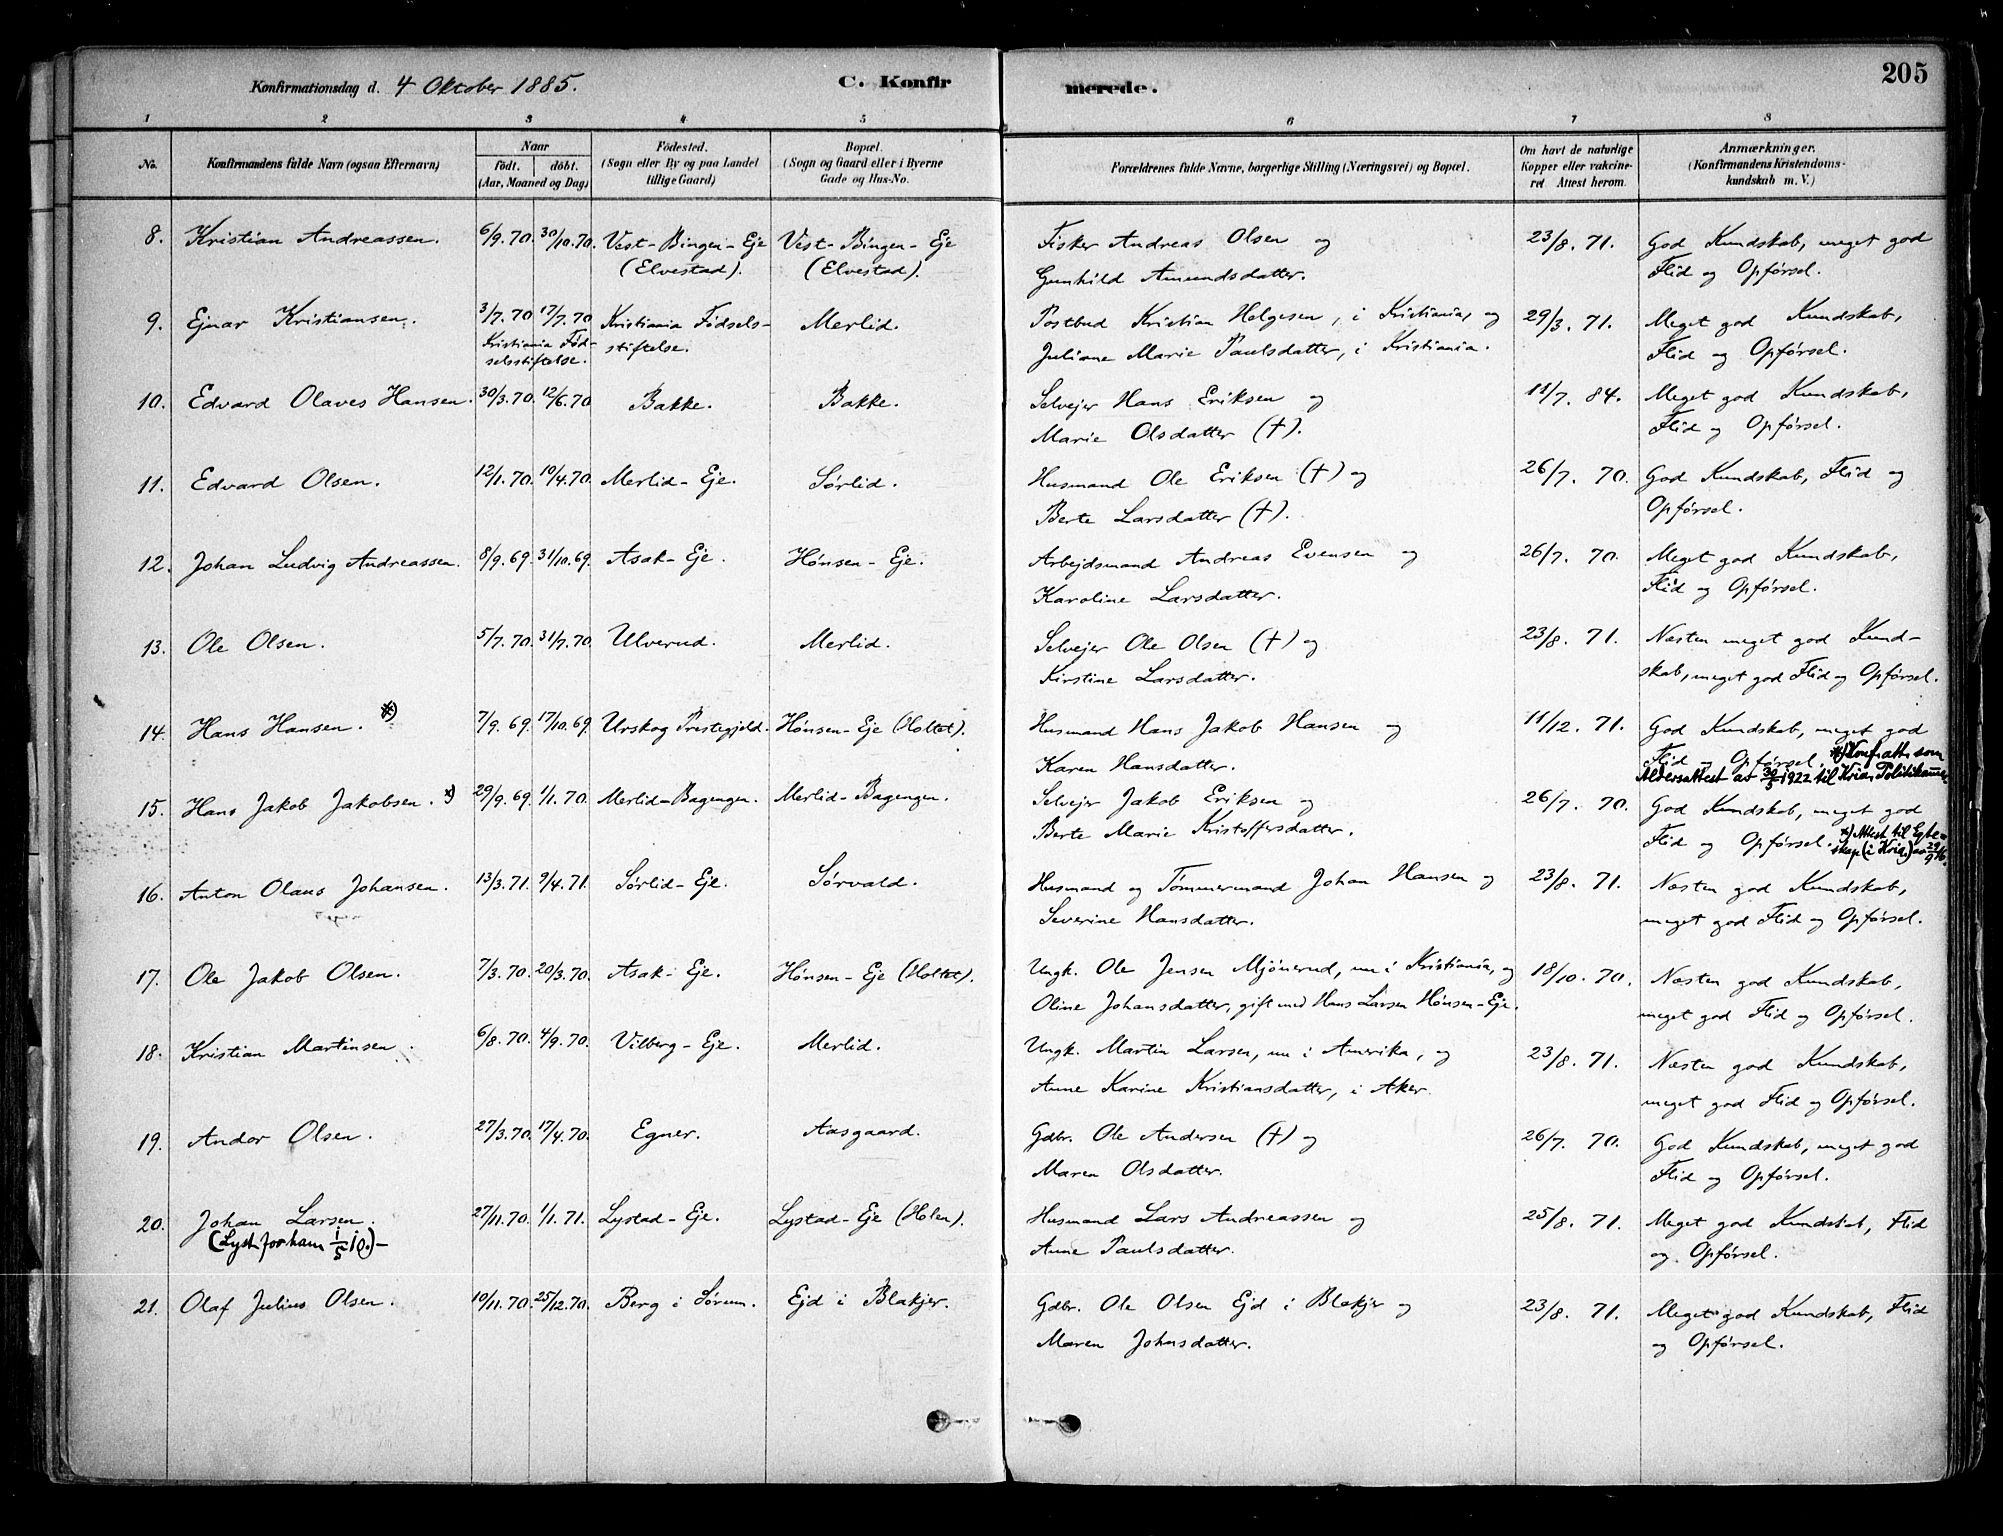 Konfirmationsdag d. 4 Oktober 1885.
C. Konfirmerede.
205
1 2 3 4 5 6 7 8
No. Konfirmandens fulde Navn (ogsaa Efternavn) Naar født. døbt. (Aar, Maaned og Dag) Fødested. (Sogn eller By og paa Landet tillige Gaard) Bopæl. (Sogn og Gaard eller i Byerne Gade og Hus-No. Forældrenes fulde Navne, borgerlige Stilling (Næringsvei) og Bopæl. Om havt de naturlige Kopper eller vakcineret Attest herom. Anmærkninger. (Konfirmandens Kristendomskundskab m. V.)
8. Kristian Andreassen. 6/9. 70. 30/10. 70. Vest-Bingen-Eje Vest-Bingen-Eje Fisker Andreas Olsen og 23/8. 71. God Kundskab, meget god
(Elvestad). (Elvestad). Gunhild Amundsdatter. Flid og Opførsel.
9. Ejnar Kristiansen. 3/7. 70 17/7. 70 Kristiania Fødsels- Merlid. Postbud Kristian Helgesen, i Kristiania, og 29/3. 71. Meget god Kundskab,
Kristiania Fød- stiftelse. Juliane Marie Paulsdatter, i Kristiania. Flid og Opførsel.
selsstiftelse.
10. Edvard Olaves Hansen. 30/3. 70. 12/6. 70 Bakke. Bakke. Selvejer Hans Eriksen og 11/7. 84. Meget god Kundskab,
Marie Olsdatter (†). Flid og Opførsel.
11. Edvard Olsen. 12/1. 70. 10/4. 70 Merlid-Eje. Sørlid. Husmand Ole Eriksen (†) og 26/7. 70. God Kundskab, Flid og
Berte Larsdatter (†). Opførsel.
12. Johan Ludvig Andreassen. 8/9. 69. 31/10. 69. Asak-Eje. Hønsen-Eje. Arbejdsmand Andreas Evensen og 26/7. 70. Meget god Kundskab,
Karoline Larsdatter. Flid og Opførsel.
13. Ole Olsen. 5/7. 70. 31/7. 70. Ulverud. Merlid. Selvejer Ole Olsen (†) og 23/8. 71. Næsten meget god Kund-
Kirstine Larsdatter. skab, meget god Flid og Opførsel.
14. Hans Hansen. *) 7/9. 69. 17/10. 69. Urskog Prestegjeld. Hønsen-Eje (Holtet). Husmand Hans Jakob Hansen og 11/12. 71. God Kundskab, meget god
Karen Hansdatter. Flid og Opførsel. *) Konf.att. som
Aldersattest av 30/3 1922 til Kria. Politikammer
15. Hans Jakob Jakobsen. *) 29/9. 69. 1/1. 70. Merlid-Bagengen. Merlid-Bagengen. Selvejer Jakob Eriksen og 26/7. 70. God Kundskab, meget god
Berte Marie Kristoffersdatter. Flid og Opførsel. *) Attest til Egte-
skap (i Kria.)
16. Anton Olaus Johansen. 13/3. 71. 9/4. 71. Sørlid-Eje. Sørvald. Husmand og Tømmermand Johan Hansen og 23/8. 71. Næsten god Kundskab,
Severine Hansdatter. meget god Flid og Opførsel.
17. Ole Jakob Olsen. 7/3. 70. 20/3. 70. Asak-Eje. Hønsen-Eje (Holtet). Ungk. Ole Jensen Mjønerud, nu i Kristiania, og 18/10. 70. Næsten god Kundskab,
Oline Johansdatter, gift med Hans Larsen Hønsen-Eje. meget god Flid og Opførsel.
18. Kristian Martinsen. 6/8. 70. 4/9. 70. Vilberg-Eje. Merlid. Ungk. Martin Larsen, nu i Amerika, og 23/8. 71. Næsten god Kundskab,
Anne Karine Kristiansdatter, i Aker. meget god Flid og Opførsel.
19. Andor Olsen. 27/3. 70. 17/4. 70. Egner. Aasgaard. Gdbr. Ole Andersen (†) og 26/7. 70. God Kundskab, meget god
Maren Olsdatter. Flid og Opførsel.
20. Johan Larsen. 27/11. 70. 1/1. 71. Lystad-Eje. Lystad-Eje (Holen). Husmand Lars Andreassen og 25/8. 71. Meget god Kundskab, Flid
Anne Paulsdatter. og Opførsel.
21. Olaf Julius Olsen. 10/11. 70. 25/12. 70. Berg i Sørum. Ejd i Blakjer. Gdbr. Ole Olsen Ejd i Blakjer og 23/8. 71. Meget god Kundskab, Flid
Maren Johnsdatter. og Opførsel.